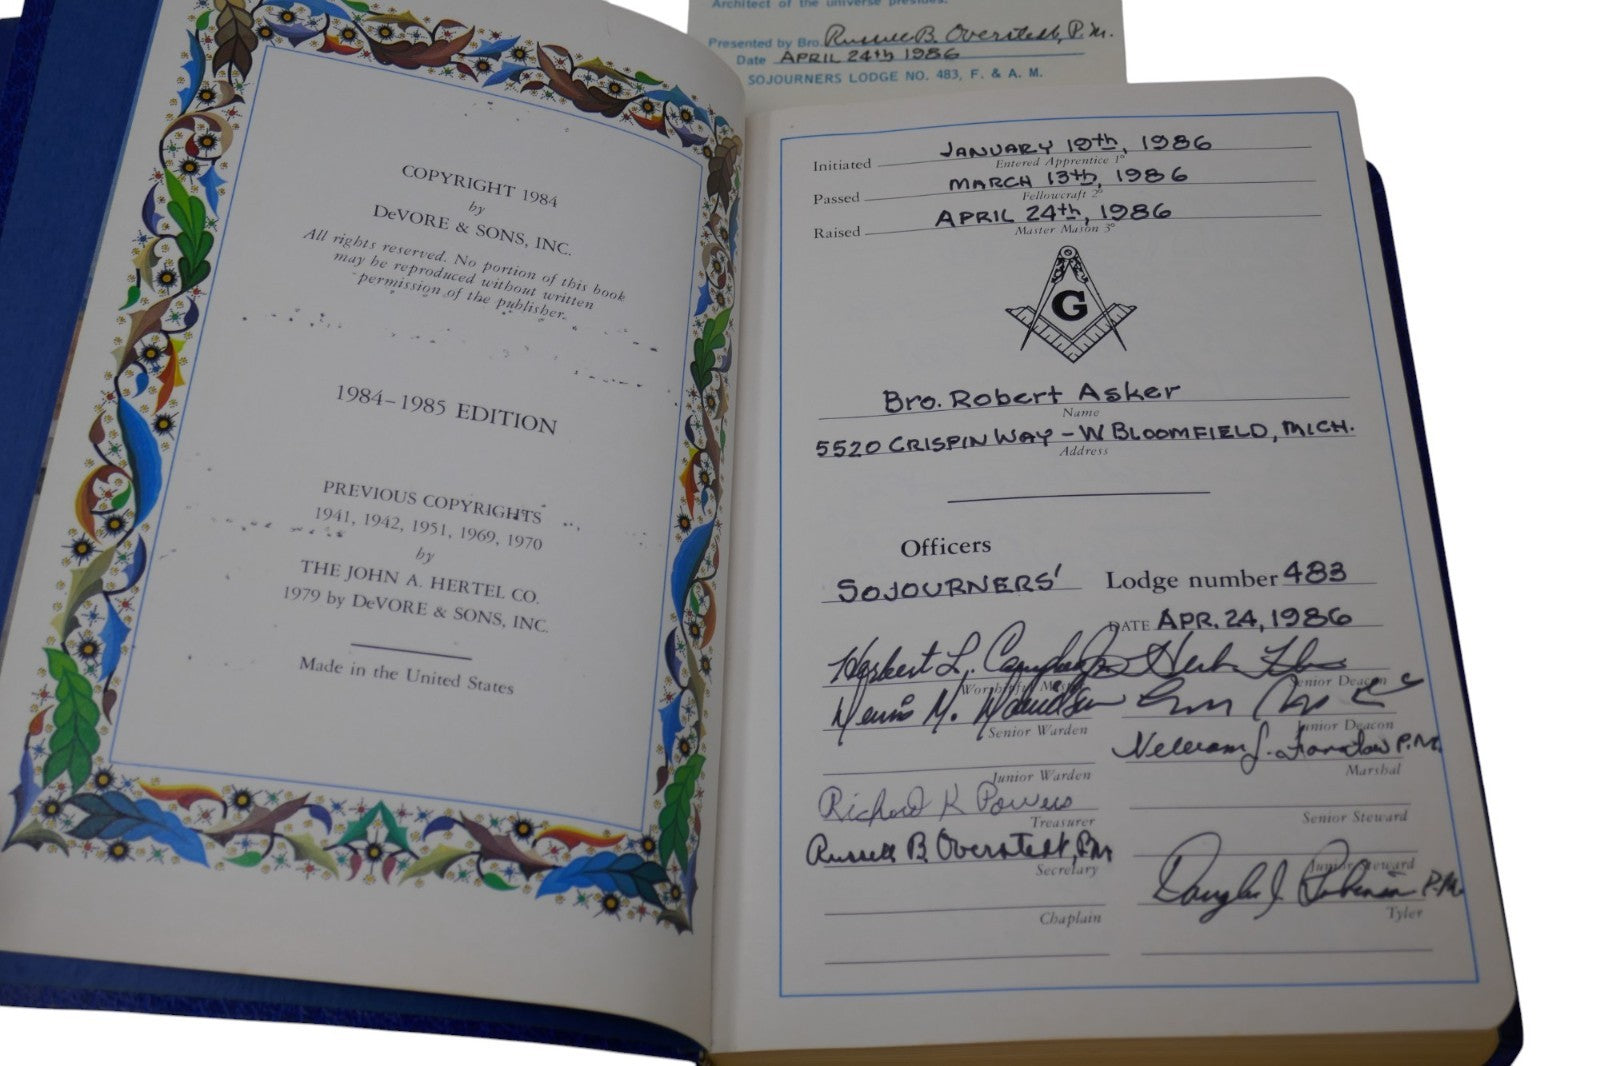 Architect of the universe presides.
Presented by Bro. Russell B. Overstedt, P.M.
Date APRIL 24th 1986
SOJOURNERS LODGE NO. 483, F. & A. M.
COPYRIGHT 1984
by
DeVORE & SONS, INC.
All rights reserved. No portion of this book
may be reproduced without written
permission of the publisher.
1984–1985 EDITION
PREVIOUS COPYRIGHTS
1941, 1942, 1951, 1969, 1970
by
THE JOHN A. HERTEL CO.
1979 by DeVORE & SONS, INC.
Made in the United States
Initiated JANUARY 19th, 1986
Entered Apprentice 1°
Passed MARCH 13th, 1986
Fellowcraft 2°
Raised APRIL 24th, 1986
Master Mason 3°
G
Bro. Robert Asker
Name
5520 CRISPIN WAY - W BLOOMFIELD, MICH.
Address
Officers
SOJOURNERS' Lodge number 483
DATE APR. 24, 1986
Herbert L.
Worshipful Master
Senior Deacon
Dennis M. Davidson
Senior Warden
Junior Deacon
P.M.
Junior Warden
Marshal
Richard K Powers
Treasurer
Senior Steward
Russell B. Overstedt, P.M.
Secretary
Junior Steward
Douglas J. P.M.
Chaplain
Tyler